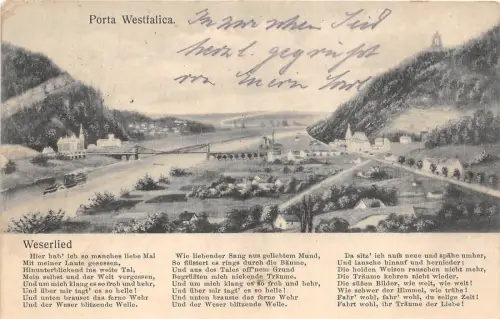 Porta Westfalica.
herzl. gegrüsst
von
Weserlied
Hier hab' ich so manches liebe Mal
Mit meiner Laute gesessen,
Hinunterblickend ins weite Tal,
Mein selbst und der Welt vergessen,
Und um mich klang es so froh und hehr,
Und über mir tagt' es so helle!
Und unten braust das ferne Wehr
Und der Weser blitzende Welle.
Wie liebender Sang aus geliebtem Mund,
So flüstert es rings durch die Bäume,
Und aus des Tales off'nem Grund
Begrüßten mich nickende Träume.
Und um mich klang es so froh und hehr,
Und über mir tagt' es so helle!
Und unten brauste das ferne Wehr
Und der Weser blitzende Welle.
Da sitz' ich aufs neue und spähe umher,
Und lausche hinauf und hernieder;
Die holden Weisen rauschen nicht mehr,
Die Träume kehren nicht wieder.
Die süßen Bilder, wie weit, wie weit!
Wie schwer der Himmel, wie trübe!
Fahr' wohl, fahr' wohl, du selige Zeit!
Fahrt wohl, ihr Träume der Liebe!